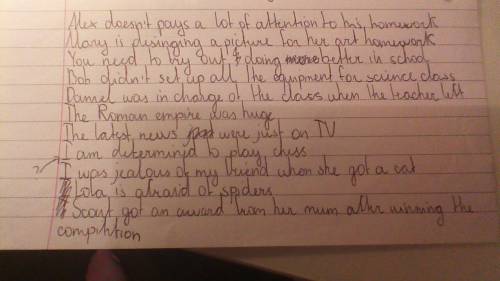 Alex doesn't pays a lot of attention to his homework
Mary is designing a picture for her art homework
You need to try out & doing better in school
Bob didn't set up all the equipment for science class
Daniel was in charge of the class when the teacher left
The Roman empire was huge
The latest news were just on TV
I am determind to play chess
I was jealous of my friend when she got a cat
Lola is afraid of spiders
Scout got an award from her mum after winning the
compitition